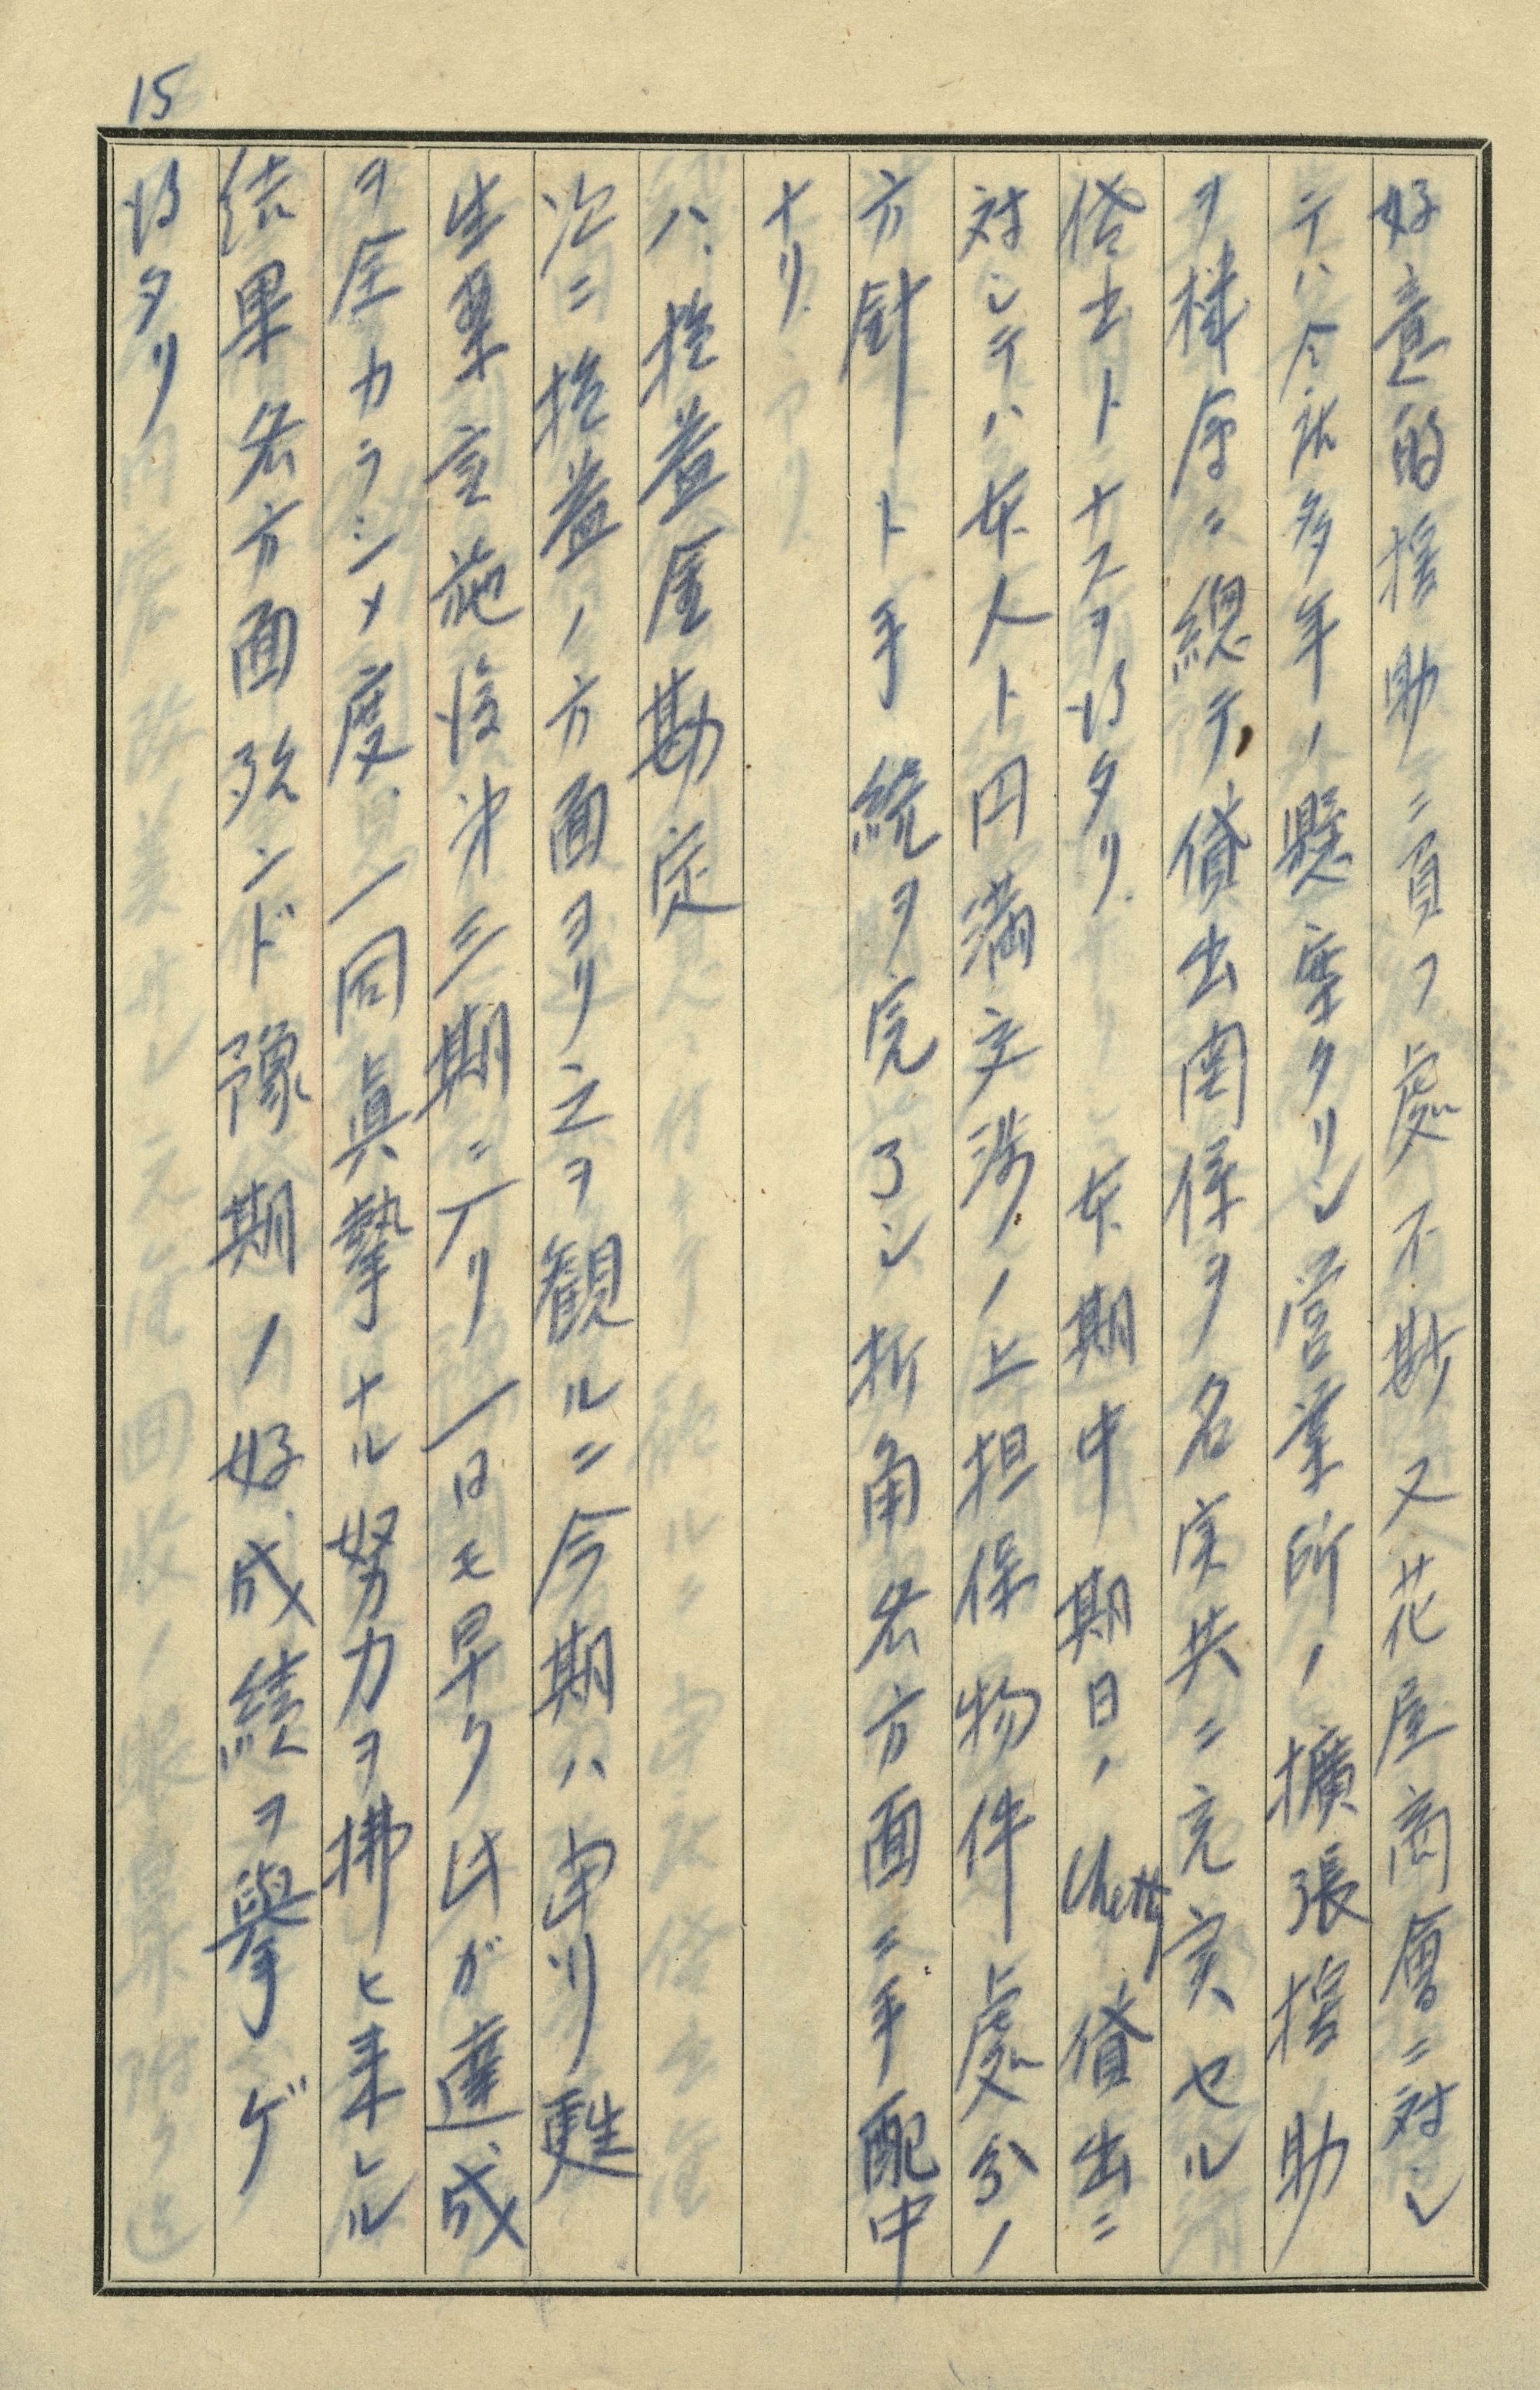 15
好意的援助ニ負フ處不尠 又花屋商會ニ対シ
テハ今迄多年ノ懸案タリシ営業所ノ擴張援助
ヲ機序ニ總テ貸出関係ヲ名実共ニ充実セル
貸出トナスヲ得タリ 本期中期日ノChetty貸出ニ
対シテハ本人ト円満交渉ノ上担保物件處分ノ
方針ト手続ヲ完了シ折角各方面ニ手配中
ナリ
ハ、損益金勘定
次ニ損益ノ方面ヨリ之ヲ観ルニ今期ハ申リ甦
生案実施後第三期ニ入リ一日モ早ク此ガ達成
ヲ全カラシメ度一同眞摯ナル努力ヲ拂ヒ来レル
結果各方面殆ンド豫期ノ好成績ヲ擧ゲ
得タリ